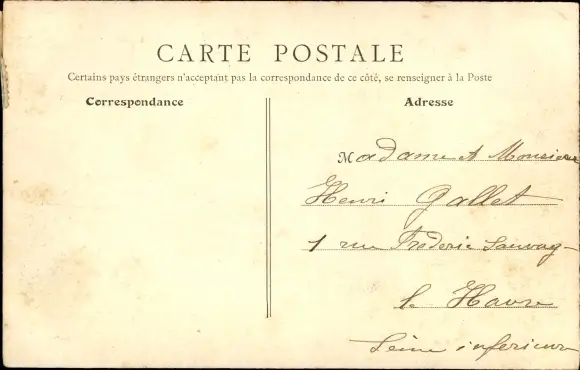 CARTE POSTALE
Certains pays étrangers n'acceptant pas la correspondance de ce côté, se renseigner à la Poste
Correspondance
Adresse
Madame et Monsieur
Henri Gallet
1 rue Frederic Sauvag-
le Havre
Seine inferieure